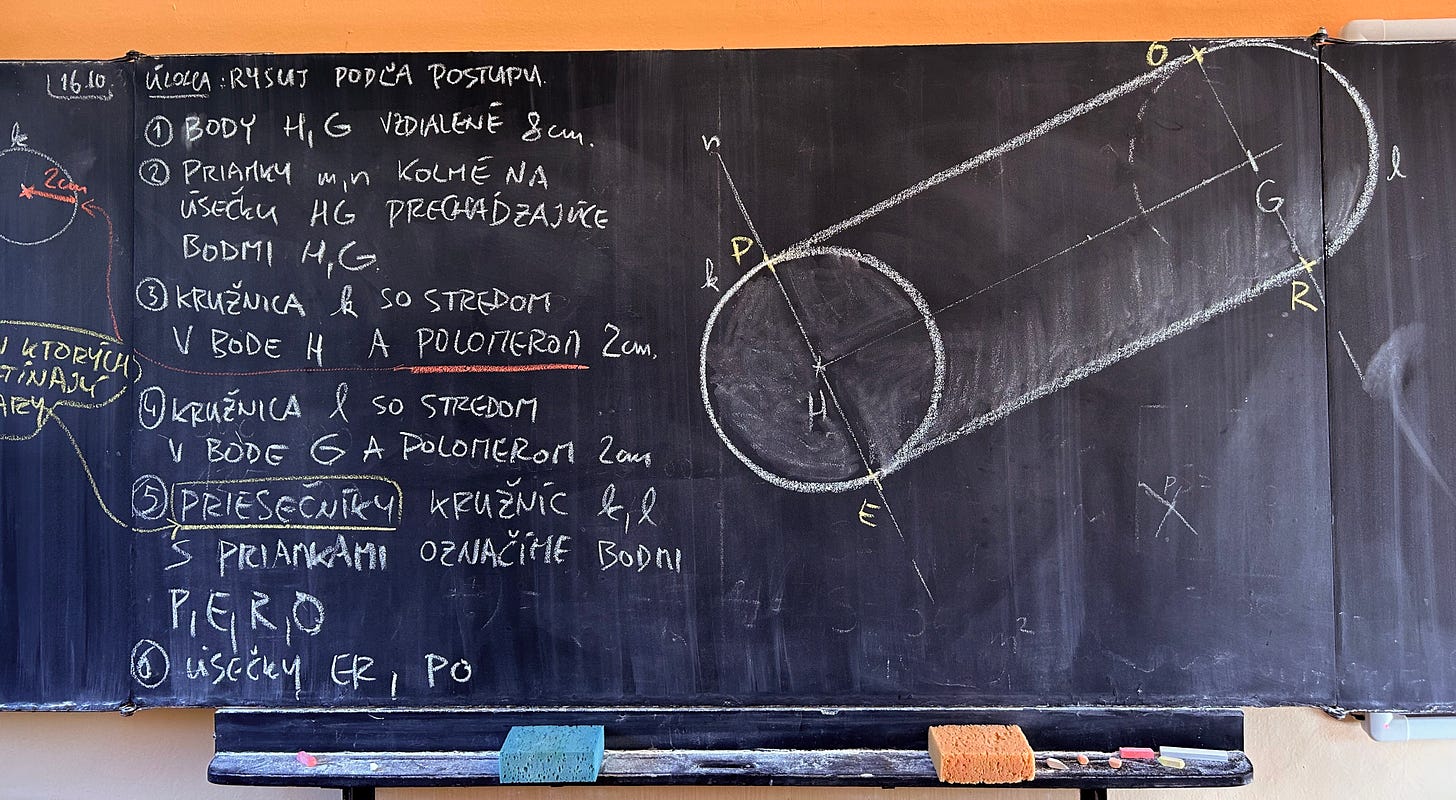 16.10.
k
2cm
KTORÝCH
ÚLOHA: RYSUJ PODĽA POSTUPU.
① BODY H, G VZDIALENÉ 8cm.
② PRIAMKY m, n KOLMÉ NA
ÚSEČKU HG PRECHÁDZAJÚCE
BODMI H, G.
③ KRUŽNICA k SO STREDOM
V BODE H A POLOMEROM 2cm.
④ KRUŽNICA l SO STREDOM
V BODE G A POLOMEROM 2cm
⑤ PRIESEČNÍKY KRUŽNÍC k, l
S PRIAMKAMI OZNAČÍME BODMI
P, E, R, O
⑥ ÚSEČKY ER, PO
O
n
l
G
P
k
R
H
E